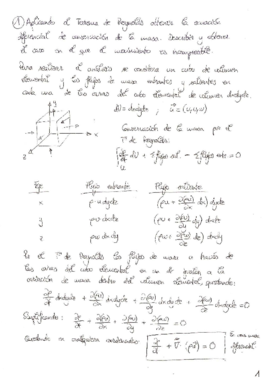 ① Aplicando el Teorema de Reynolds obtener la ecuación
diferencial de conservación de la masa. Describir y obtener
el caso en el que el movimiento es incompresible.
Para realizar el análisis se considera un cubo de volumen
elemental y los flujos de masa entrantes y salientes en
cada una de las caras del cubo elemental de volumen dxdydz.
dV = dxdydz , u⃗ = (u,v,w)
Conservación de la masa por el
Tª de Reynolds:
∫ ∂ρ/∂t dV + Σ flujo sal. - Σ flujo ent = 0
Eje Flujo entrante Flujo saliente
x ρu dydz (ρu + ∂(ρu)/∂x dx) dydz
y ρv dxdz (ρv + ∂(ρv)/∂y dy) dxdz
z ρw dxdy (ρw + ∂(ρw)/∂z dz) dxdy
Por el Tª de Reynolds los flujos de masa a través de
las caras del cubo elemental es igual a la
variación de masa dentro del volumen elemental, quedando:
∂ρ/∂t dxdydz + ∂(ρu)/∂x dxdydz + ∂(ρv)/∂y dxdydz + ∂(ρw)/∂z dxdydz = 0
Simplificando: ∂ρ/∂t + ∂(ρu)/∂x + ∂(ρv)/∂y + ∂(ρw)/∂z = 0
∂ρ/∂t + ∇ · (ρu⃗) = 0
diferencial
1